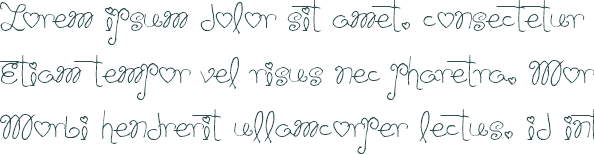 Lorem ipsum dolor sit amet, consectetur
Etiam tempor vel risus nec pharetra. Mor
Morbi hendrerit ullamcorper lectus, id int